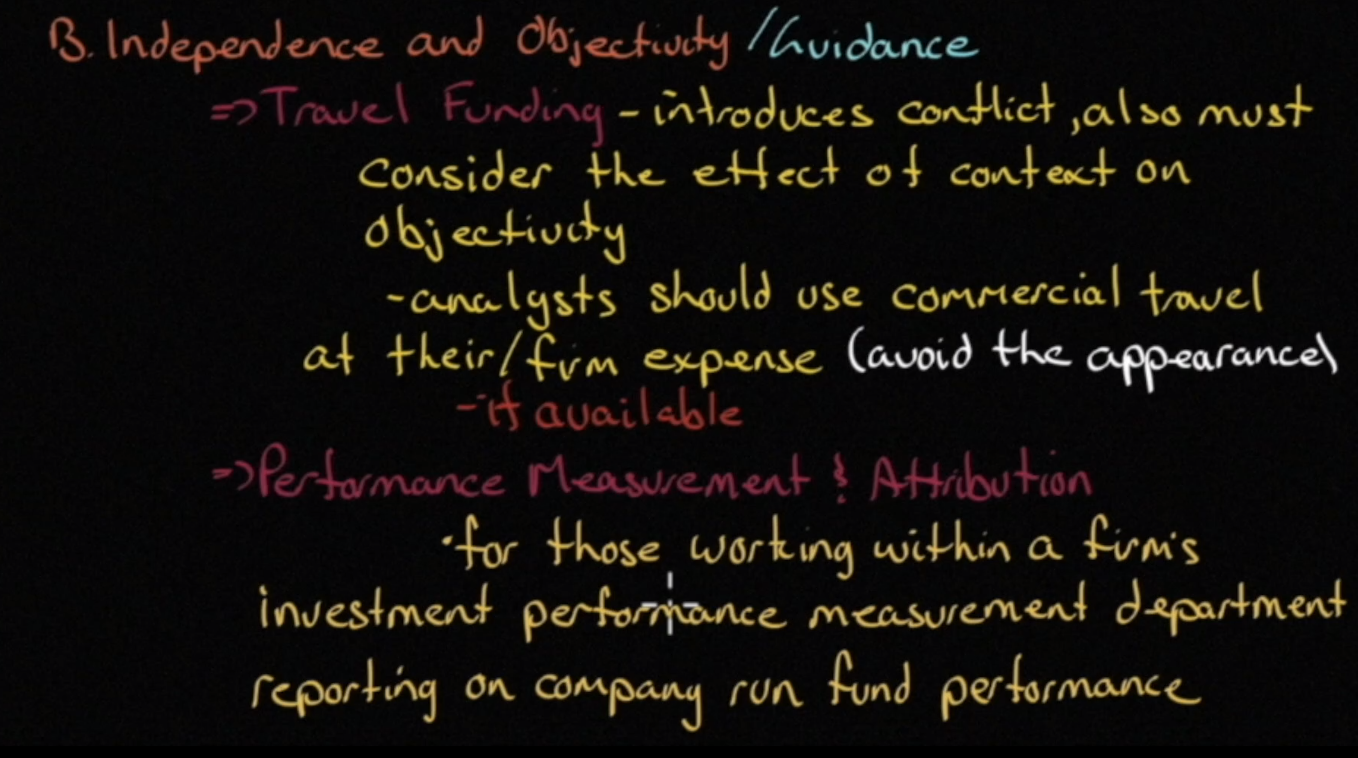 B. Independence and Objectivity /Guidance
=> Travel Funding - introduces conflict, also must
consider the effect of context on
objectivity
- analysts should use commercial travel
at their/firm expense (avoid the appearance)
- if available
=> Performance Measurement & Attribution
• for those working within a firm's
investment performance measurement department
reporting on company run fund performance